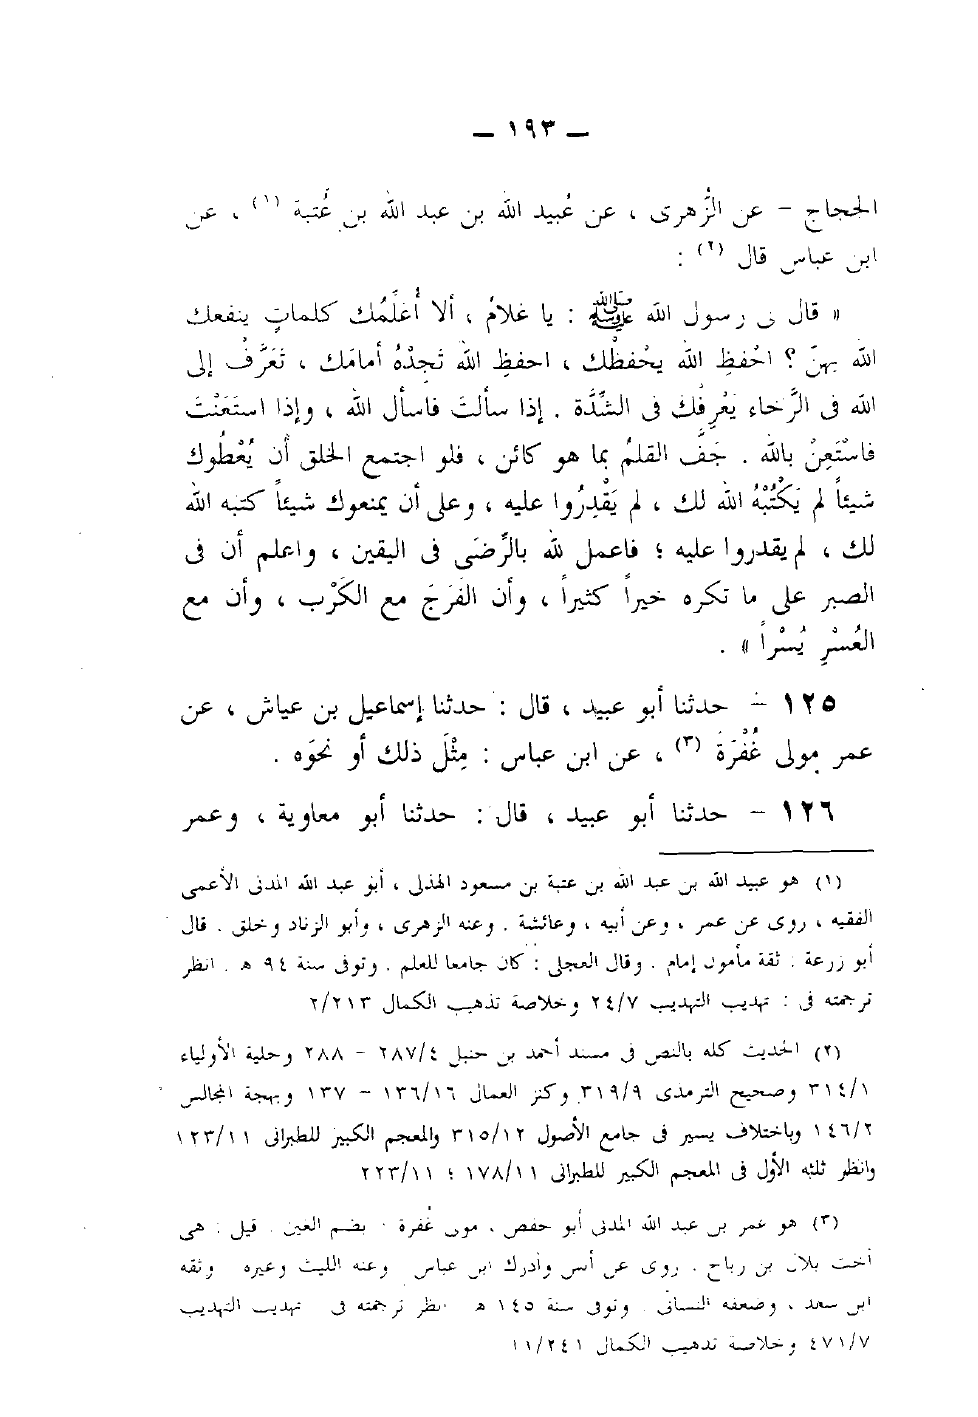 — ١٩٣ —
الحجاج – عن الزُّهرى ، عن عُبيد الله بن عبد الله بن عُتبة (١) ، عن
ابن عباس قال (٢) :
« قال لى رسول الله ﷺ : يا غلامُ ، ألا أُعَلِّمُك كلماتٍ ينفعك
الله بهنّ ؟ احْفظِ الله يحْفظْك ، احفظِ الله تَجدْهُ أمامَك ، تَعَرَّفْ إلى
الله فى الرَّخاء يَعْرِفْك فى الشّدَّة . إذا سألتَ فاسأل الله ، وإذا استَعَنْتَ
فاسْتَعِنْ بالله . جَفَّ القلمُ بما هو كائن ، فلو اجتمع الخلق أن يُعْطُوك
شيئاً لم يَكْتُبْهُ الله لك ، لم يَقْدِرُوا عليه ، وعلى أن يمنعوك شيئاً كتبه الله
لك ، لم يقدروا عليه ؛ فاعمل لله بالرِّضَى فى اليقين ، واعلم أن فى
الصبر على ما تكره خيراً كثيراً ، وأن الفَرَجَ مع الكَرْب ، وأن مع
العُسْرِ يُسْراً » .
١٢٥ – حدثنا أبو عبيد ، قال : حدثنا إسماعيل بن عياش ، عن
عمر مولى غُفْرَة (٣) ، عن ابن عباس : مِثْلَ ذلك أو نحوَه .
١٢٦ – حدثنا أبو عبيد ، قال : حدثنا أبو معاوية ، وعمر
(١) هو عبيد الله بن عبد الله بن عتبة بن مسعود الهذلى ، أبو عبد الله المدنى الأعمى
الفقيه ، روى عن عمر ، وعن أبيه ، وعائشة . وعنه الزهرى ، وأبو الزناد وخلق . قال
أبو زرعة : ثقة مأمون إمام . وقال العجلى : كان جامعا للعلم . وتوفى سنة ٩٤ هـ . انظر
ترجمته فى : تهذيب التهذيب ٢٤/٧ وخلاصة تذهيب الكمال ٢/٢١٣
(٢) الحديث كله بالنص فى مسند أحمد بن حنبل ٢٨٧/٤ – ٢٨٨ وحلية الأولياء
٣١٤/١ وصحيح الترمذى ٣١٩/٩ وكنز العمال ١٣٦/١٦ – ١٣٧ وبهجة المجالس
١٤٦/٢ وباختلاف يسير فى جامع الأصول ٣١٥/١٢ والمعجم الكبير للطبرانى ١٢٣/١١
وانظر ثلثه الأول فى المعجم الكبير للطبرانى ١٧٨/١١ ؛ ٢٢٣/١١
(٣) هو عمر بن عبد الله المدنى أبو حفص ، مولى غُفرة بضم الغين . قيل : هى
أخت بلال بن رباح . روى عن أنس وأدرك ابن عباس وعنه الليث وغيره وثقه
ابن سعد ، وضعفه النسائى . وتوفى سنة ١٤٥ هـ انظر ترجمته فى تهذيب التهذيب
٤٧١/٧ وخلاصة تذهيب الكمال ١١/٢٤١